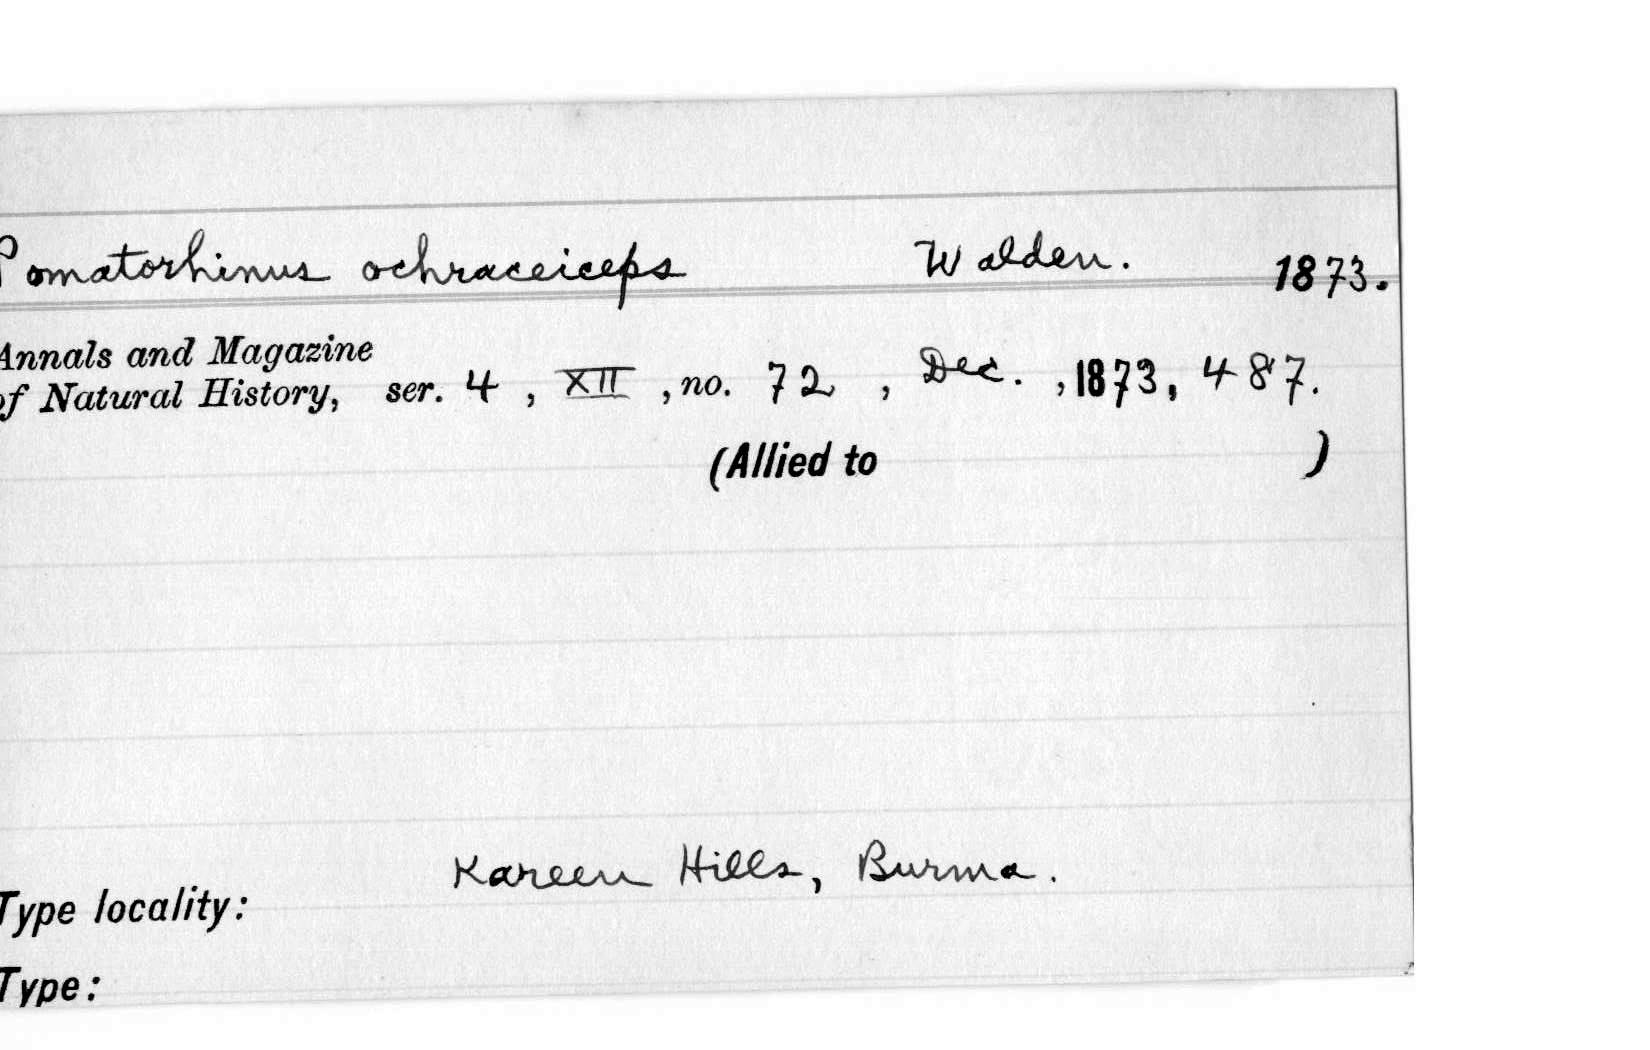 Pomatorhinus ochraceiceps Walden. 1873.
Annals and Magazine
of Natural History, ser. 4, XII, no. 72, Dec., 1873, 487.
(Allied to )
Kareen Hills, Burma.
Type locality:
Type: